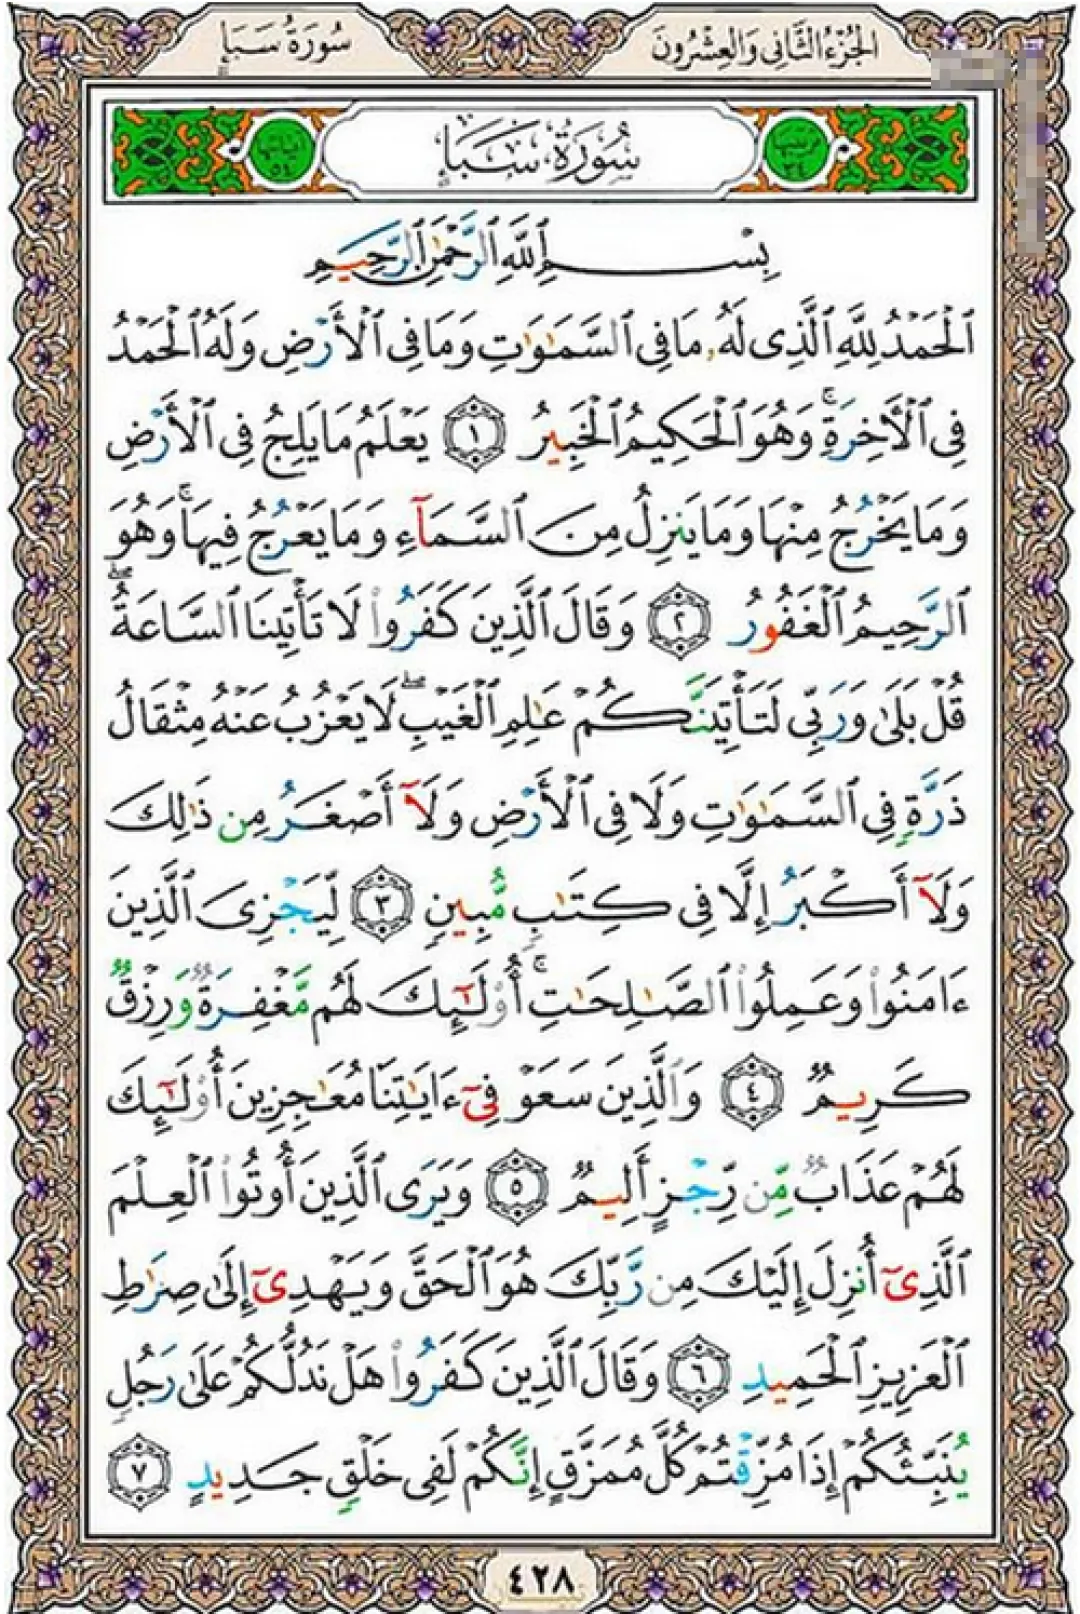 الجزء الثاني والعشرون
سورة سبإ
ترتيبها ٣٤
سورة سبإ
آياتها ٥٤
بِسْمِ ٱللَّهِ ٱلرَّحْمَٰنِ ٱلرَّحِيمِ
ٱلْحَمْدُ لِلَّهِ ٱلَّذِى لَهُۥ مَا فِى ٱلسَّمَٰوَٰتِ وَمَا فِى ٱلْأَرْضِ وَلَهُ ٱلْحَمْدُ
فِى ٱلْأَخِرَةِۚ وَهُوَ ٱلْحَكِيمُ ٱلْخَبِيرُ ١ يَعْلَمُ مَا يَلِجُ فِى ٱلْأَرْضِ
وَمَا يَخْرُجُ مِنْهَا وَمَا يَنزِلُ مِنَ ٱلسَّمَآءِ وَمَا يَعْرُجُ فِيهَاۚ وَهُوَ
ٱلرَّحِيمُ ٱلْغَفُورُ ٢ وَقَالَ ٱلَّذِينَ كَفَرُوا۟ لَا تَأْتِينَا ٱلسَّاعَةُۖ
قُلْ بَلَىٰ وَرَبِّى لَتَأْتِيَنَّكُمْ عَٰلِمِ ٱلْغَيْبِۖ لَا يَعْزُبُ عَنْهُ مِثْقَالُ
ذَرَّةٍ فِى ٱلسَّمَٰوَٰتِ وَلَا فِى ٱلْأَرْضِ وَلَآ أَصْغَرُ مِن ذَٰلِكَ
وَلَآ أَكْبَرُ إِلَّا فِى كِتَٰبٍ مُّبِينٍ ٣ لِّيَجْزِىَ ٱلَّذِينَ
ءَامَنُوا۟ وَعَمِلُوا۟ ٱلصَّٰلِحَٰتِۚ أُو۟لَٰٓئِكَ لَهُم مَّغْفِرَةٌ وَرِزْقٌ
كَرِيمٌ ٤ وَٱلَّذِينَ سَعَوْ فِىٓ ءَايَٰتِنَا مُعَٰجِزِينَ أُو۟لَٰٓئِكَ
لَهُمْ عَذَابٌ مِّن رِّجْزٍ أَلِيمٌ ٥ وَيَرَى ٱلَّذِينَ أُوتُوا۟ ٱلْعِلْمَ
ٱلَّذِىٓ أُنزِلَ إِلَيْكَ مِن رَّبِّكَ هُوَ ٱلْحَقَّ وَيَهْدِىٓ إِلَىٰ صِرَٰطِ
ٱلْعَزِيزِ ٱلْحَمِيدِ ٦ وَقَالَ ٱلَّذِينَ كَفَرُوا۟ هَلْ نَدُلُّكُمْ عَلَىٰ رَجُلٍ
يُنَبِّئُكُمْ إِذَا مُزِّقْتُمْ كُلَّ مُمَزَّقٍ إِنَّكُمْ لَفِى خَلْقٍ جَدِيدٍ ٧
٤٢٨